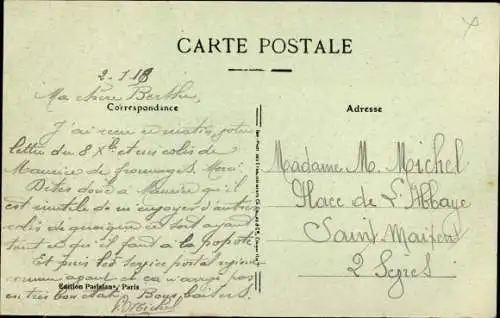 CARTE POSTALE
2-1-18
Ma chère Berthe,
Correspondance
J'ai reçu ce matin, votre
lettre du 8 Xbre et un colis de
Maurice de fromages. Merci.
Dites donc à Maurice qu'il
est inutile de m'envoyer d'autres
colis de quoique ce soit ayant
tout ce qu'il faut à la popote
Et puis les service postal
comme ça n'arrive pas
en très bon état. Bons baisers.
Edition Parisiana, Paris
Michel
Adresse
Madame M. Michel
Place de L'Abbaye
Saint Maixent
2 Sèvres